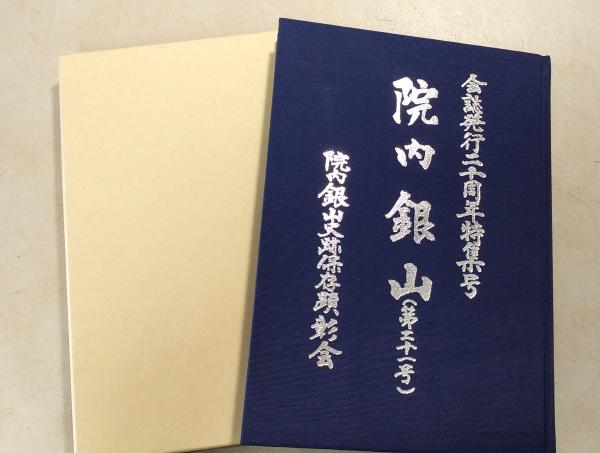 会誌発行二十周年特集号
院内銀山(第二十一号)
院内銀山史跡保存顕彰会